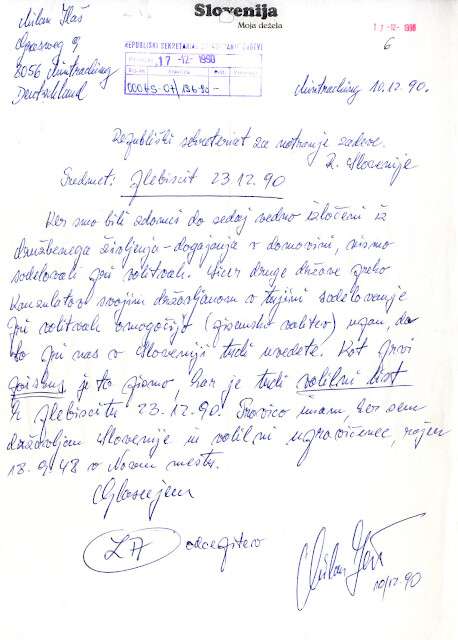 Slovenija
Moja dežela
Milan Ilaš
8056 Mintraching
Deutschland
REPUBLIŠKI SEKRETARIAT ZA NOTRANJE ZADEVE
17 -12- 1990
17 -12- 1990
6
Mintraching 10.12.90.
Republiški sekretariat za notranje zadeve.
R. Slovenije
Predmet: Plebiscit 23.12.90
Ker smo bili zdomci do sedaj vedno izločeni iz
družbenega življenja-dogajanja v domovini, nismo
sodelovali pri volitvah. Sicer druge države preko
konzulatov svojim državljanom v tujini sodelovanje
pri volitvah omogočijo (pismeno volitev) upam, da
to pri nas v Sloveniji tudi uvedete. Kot prvi
poiskus je to pismo, kar je tudi volilni list
k plebiscitu 23.12.90. Pravico imam, ker sem
državljan Slovenije in volilni upravičenec, rojen
18.9.48 v Novem mestu.
Glasujem
ZA odcepitev
Milan
10/12-90